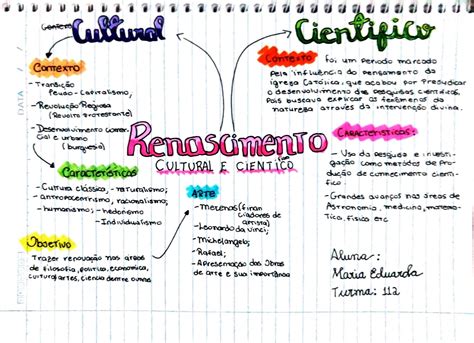 Cultural
Científico
CONTEXTO
- Transição
Feudo-Capitalismo;
- Revolução Religiosa
(Revolta protestante)
- Desenvolvimento Comer
cial e urbano
(burguesia)
CONTEXTO Foi um período marcado
pela influência do pensamento da
igreja Católica, que acabou por prejudicar
o desenvolvimento das pesquisas científicas,
Pois buscava explicar os fenômenos da
natureza através da intervenção divina.
Renascimento
CULTURAL E CIENTÍFICO
Características
- Cultura clássica, - naturalismo;
- antropocentrismo, racionalismo;
- humanismo; - hedonismo
- Individualismo
ARTE
- Mecenas (finan
ciadores de
artistas)
- Leonardo da vinci;
- Michelangelo;
- Rafael;
- Apresentação das Obras
de arte e sua importância
Objetivo
Trazer renovação nas áreas
de filosofia, política, econômica,
cultura, artes, ciência dentre outras
CARACTERÍSTICAS:
- Uso da pesquisa e investi-
gação como métodos de pro-
dução de conhecimento cientí-
fico.
- Grandes avanços nas áreas de
Astronomia, medicina, matemá-
tica, física etc
Aluna:
Maria Eduarda
Turma: 112
DATA